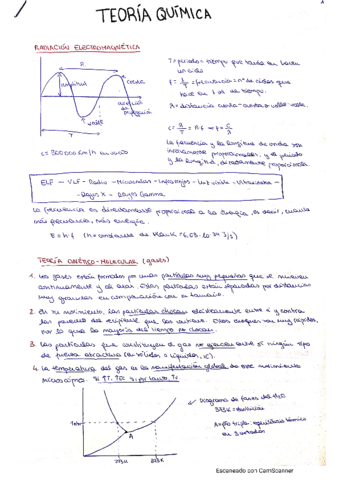 TEORÍA QUÍMICA
RADIACIÓN ELECTROMAGNÉTICA
T = periodo = tiempo que tarda en hacer
un ciclo
f = 1/T = frecuencia = nº de ciclos que
hace en 1 s de tiempo.
λ = distancia cresta-cresta o valle-valle.
λ
amplitud
cresta
dirección de
propagación
valle
T
c = λ/T = λ·f → f = c/λ
c = 300.000 km/s en vacío
La frecuencia y la longitud de onda son
inversamente proporcionales, y el periodo
y la longitud, directamente proporcionales.
ELF - VLF - Radio - Microondas - Infrarrojos - Luz visible - Ultravioleta -
- Rayos X - Rayos Gamma
La frecuencia es directamente proporcional a la energía, es decir, cuanta
más frecuencia, más energía.
E = h·f (h = constante de Planck:
TEORÍA CINÉTICO-MOLECULAR (gases)
1. Los gases están formados por unas partículas muy pequeñas que se mueven
continuamente y al azar. Estas partículas están separadas por distancias
muy grandes en comparación con su tamaño.
2. En su movimiento, las partículas chocan elásticamente entre sí y contra
las paredes del recipiente que las contiene. Estos choques son muy rápidos,
por lo que la mayoría del tiempo no chocan.
3. Las partículas que constituyen el gas no ejercen entre sí ningún tipo
de fuerza atractiva
4. La temperatura del gas es la manifestación global de este movimiento
microscópico. Si ↑T, ↑Ec
Diagrama de fases del H2O
373K = ebullición
triple: equilibrio térmico
en 3 estados
A
273K
373K
Escaneado con CamScanner